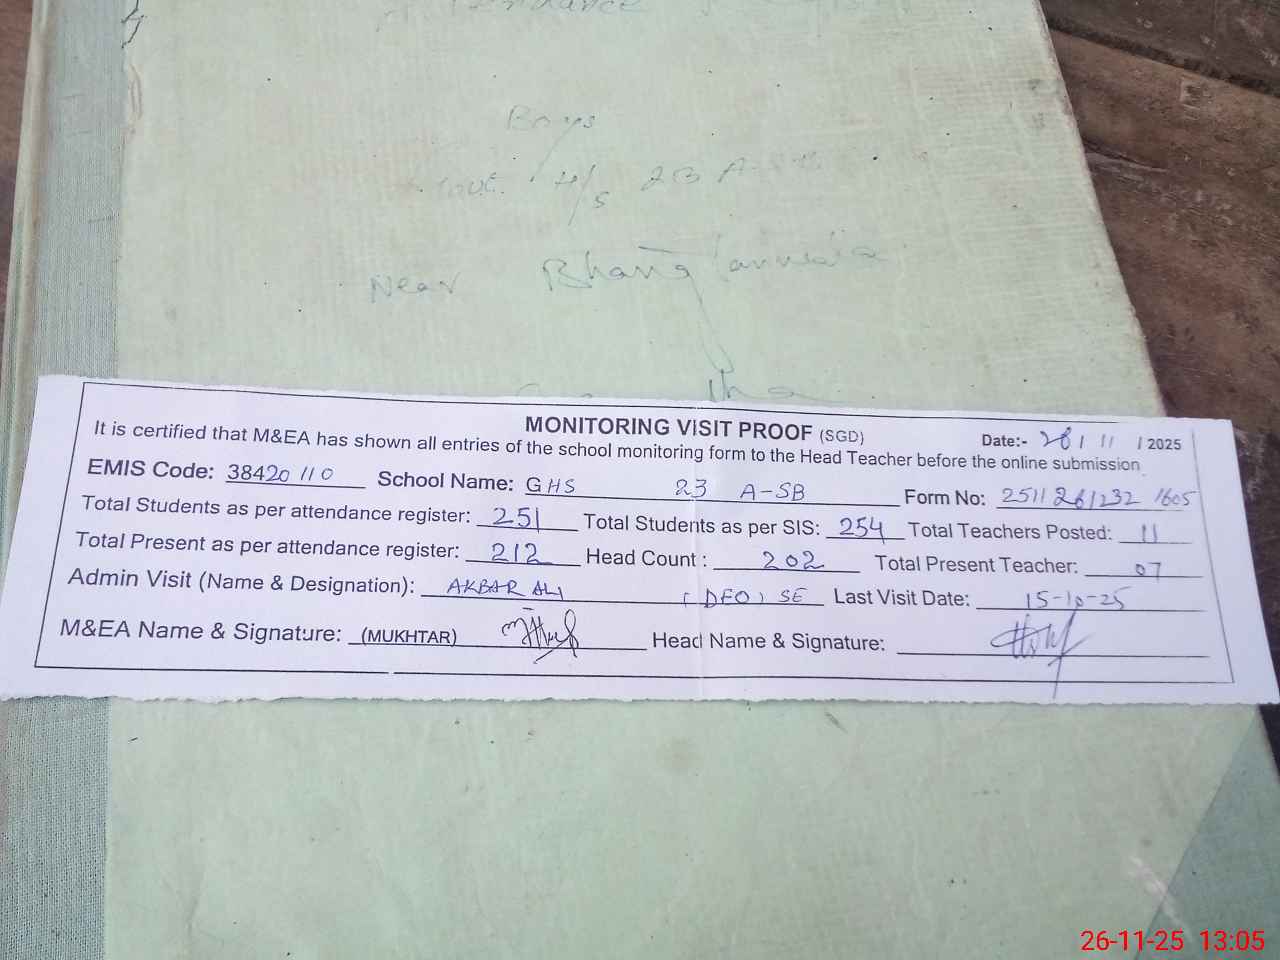 Boys
Govt. H/S 23 A-SB
Near
MONITORING VISIT PROOF (SGD)
Date:- 26/11/2025
It is certified that M&EA has shown all entries of the school monitoring form to the Head Teacher before the online submission
EMIS Code: 38420110 School Name: GHS 23 A-SB Form No: 2511261232 1605
Total Students as per attendance register: 251 Total Students as per SIS: 254 Total Teachers Posted: 11
Total Present as per attendance register: 212 Head Count : 202 Total Present Teacher: 07
Admin Visit (Name & Designation): AKBAR ALI (DEO) SE Last Visit Date: 15-10-25
M&EA Name & Signature: (MUKHTAR) Head Name & Signature:
26-11-25 13:05